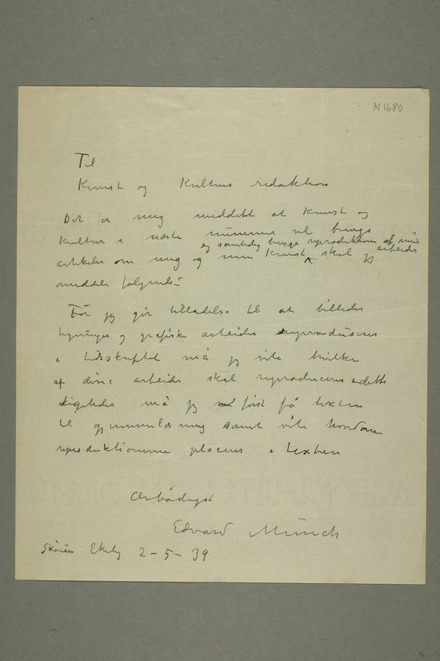 N 1680
Til
Kunst og Kulturs redaktion
Det er mig meddelt at Kunst og
Kultur i næste nummer vil bringe
og samtidig bringe reproduktioner af mine arbeider
artikler om mig og min Kunst skal jeg
meddele følgende:
Før jeg gir tilladelse til at billeder
tegninger og grafiske arbeider reproduseres
i tidsskriftet må jeg vite hvilke
af disse arbeider skal reproduceres i dette
Ligeledes må jeg først få texten
til gjennemlæsning samt vite hvordan
reproduktionerne placeres i texten
Ærbødigst
Edvard Munch
Skøien Ekely 2-5-39